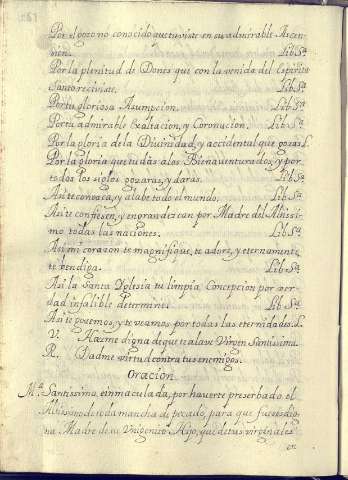 Por el gozo no conocido que tuviste en su admirable Ascen-
sion. Lib Sra
Por la plenitud de Dones que con la venida del Espiritu
Santo recibiste. Lib. Sra
Por tu gloriosa Asumpcion. Lib. Sra
Por tu admirable Exaltacion, y Coronacion. Lib Sra
Por la gloria de la Divinidad, y accidental que gozas L.
Por la gloria que tu das a los Bienaventurados, y por
todos los siglos gozaras, y daras. Lib Sra
Asi te conozca, y alabe todo el mundo. Lib Sra
Asi te confiesen, y engrandezcan por Madre del Altissi-
mo todas las naciones. Lib Sra
Asi mi corazon te magnifique, te adore, y eternamente
te bendiga. Lib Sra
Asi la Santa Yglesia tu limpia Concepcion por ver-
dad infalible determine. Lib Sra
Asi te gozemos, y te veamos por todas las eternidades. L.
V. Hazme digna de que te alave Virgen Santissima
R. Dadme virtud contra tus enemigos.
Oracion
Ma Santissima, e inmaculada, por haverte preserbado el
Altissimo de toda mancha de pecado, para que fueses dig-
na Madre de su Unigenito Hijo, que de tus virginales
en